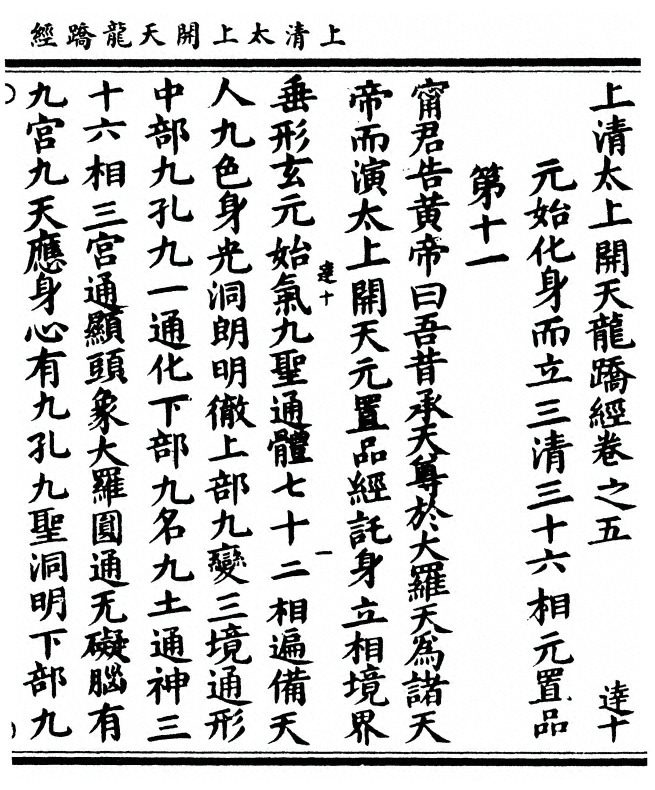 上清太上開天龍蹻經
上清太上開天龍蹻經卷之五 達十
元始化身而立三清三十六相元置品
第十一
甯君告黄帝曰吾昔承天尊於大羅天為諸天
帝而演太上開天元置品經託身立相境界
達十 一
垂形玄元始氣九聖通體七十二相遍備天
人九色身光洞朗明徹上部九變三境通形
中部九孔九一通化下部九名九土通神三
十六相三宮通顯頭象大羅圓通无礙腦有
九宮九天應身心有九孔九聖洞明下部九